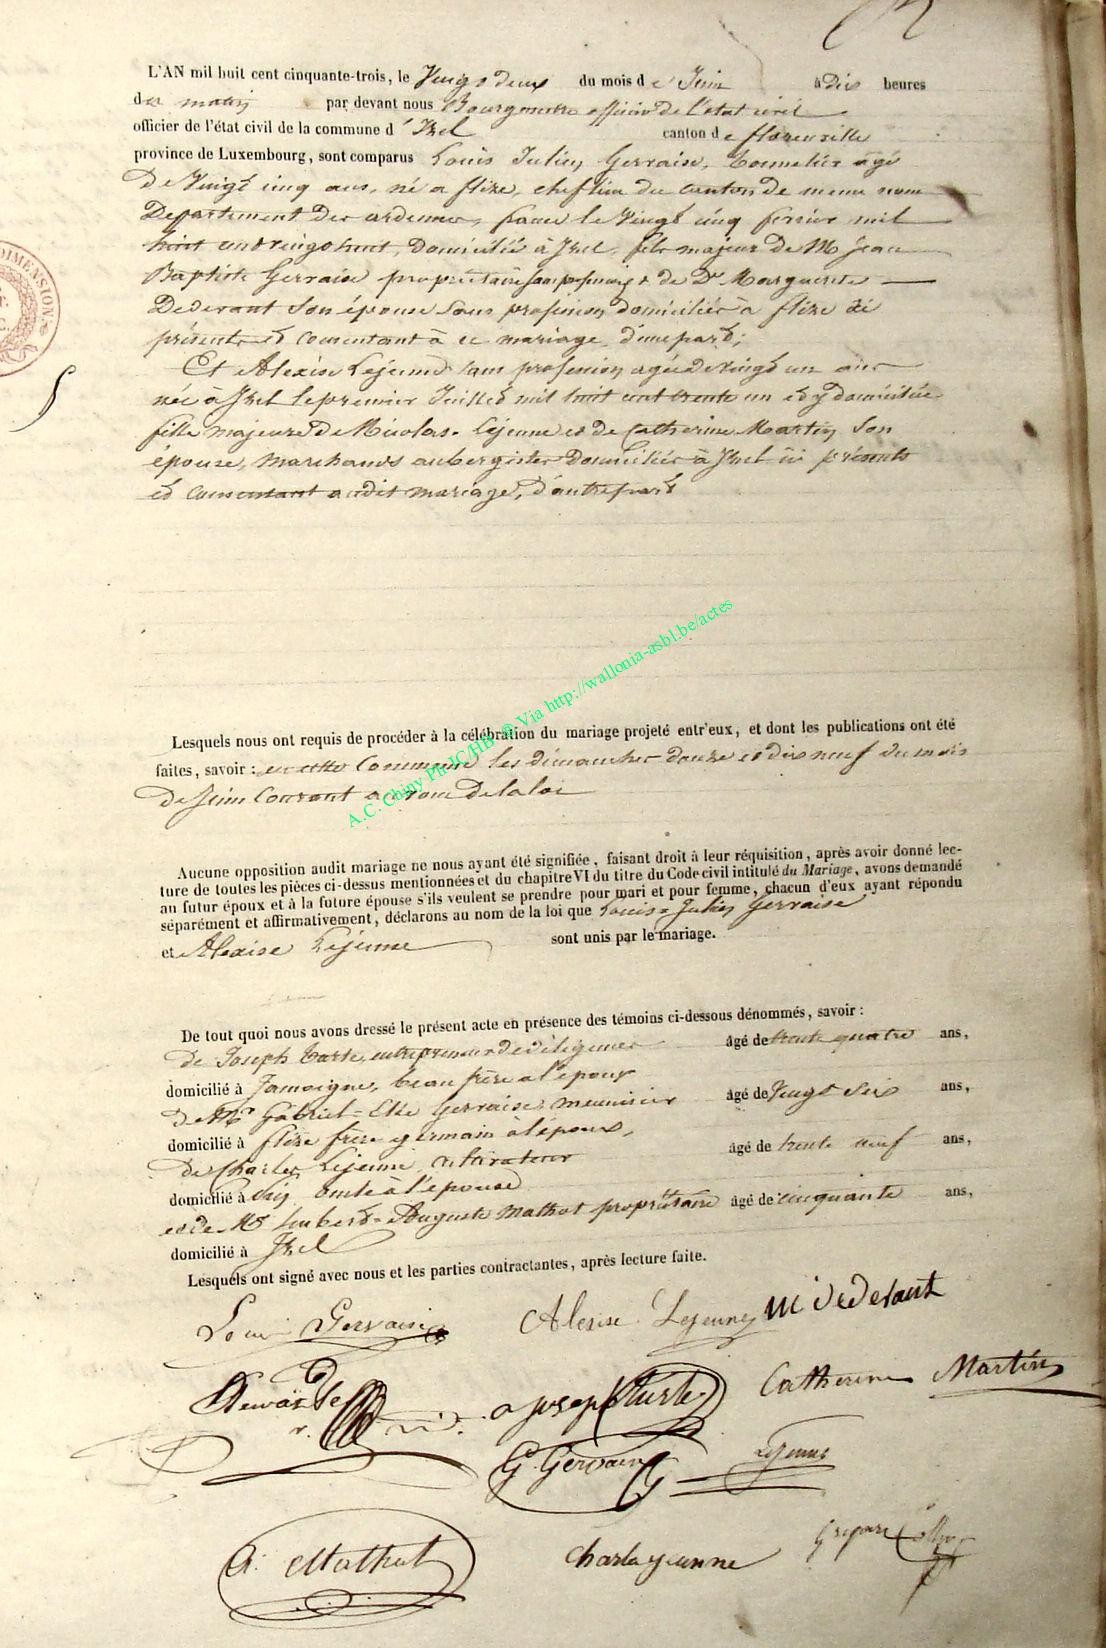 L'AN mil huit cent cinquante-trois, le Vingt deux du mois de Juin à dix heures
du matin par devant nous Bourgmestre officier de l'état civil
officier de l'état civil de la commune d'Izel canton de florenville
province de Luxembourg, sont comparus Louis Julien Gervaise, Tonnelier âgé
De Vingt cinq ans, né a flize, chef lieu du canton de meme nom
Departement des ardennes, france le Vingt cinq fevrier mil
huit cent vingt huit, Domicilié à Izel, fils majeur de Mr Jean
Baptiste Gervaise propriétaire sans profession et de De Marguerite
Dederant Son épouse Sans profession domiciliés à flize ici
présents et consentant à ce mariage d'une part;
Et Alexise Lejeune Sans profession agée de vingt un ans
née à Izel le premier Juillet mil huit cent trente un et y domiciliée
fille majeure de Nicolas Lejeune et de Catherine Martin Son
épouse, marchands aubergistes Domiciliés à Izel ici présents
et consentant audit mariage, d'autre part
Lesquels nous ont requis de procéder à la célébration du mariage projeté entr'eux, et dont les publications ont été
faites, savoir : en cette Commune les dimanches douze et dix neuf du mois
de Juin Courant au vœu de la loi
A.C. Chiny Ph JC/HB ® Via http://wallonia-asbl.be/actes
Aucune opposition audit mariage ne nous ayant été signifiée, faisant droit à leur réquisition, après avoir donné lec-
ture de toutes les pièces ci-dessus mentionnées et du chapitre VI du titre du Code civil intitulé du Mariage, avons demandé
au futur époux et à la future épouse s'ils veulent se prendre pour mari et pour femme, chacun d'eux ayant répondu
séparément et affirmativement, déclarons au nom de la loi que Louis-Julien Gervaise
et Alexise Lejeune sont unis par le mariage.
De tout quoi nous avons dressé le présent acte en présence des témoins ci-dessous dénommés, savoir :
de Joseph Tarte, entrepreneur de diligences âgé de trente quatre ans,
domicilié à Jamoigne, beau frère a l'époux
de Mr Gabriel-Elie Gervaise, meunier âgé de Vingt Six ans,
domicilié à flize frère germain à l'époux,
de Charles Lejeune, cultivateur âgé de trente neuf ans,
domicilié à oncle à l'épouse
et de Mr hubert-Auguste Mathot propriétaire âgé de cinquante ans,
domicilié à Izel
Lesquels ont signé avec nous et les parties contractantes, après lecture faite.
Louis Gervaise Alexise Lejeune M Dederant
Gervaise Joseph Tarte Catherine Martin
G. Gervaise Lejeune
A. Mathot Charles Lejeunne
DIMENSION